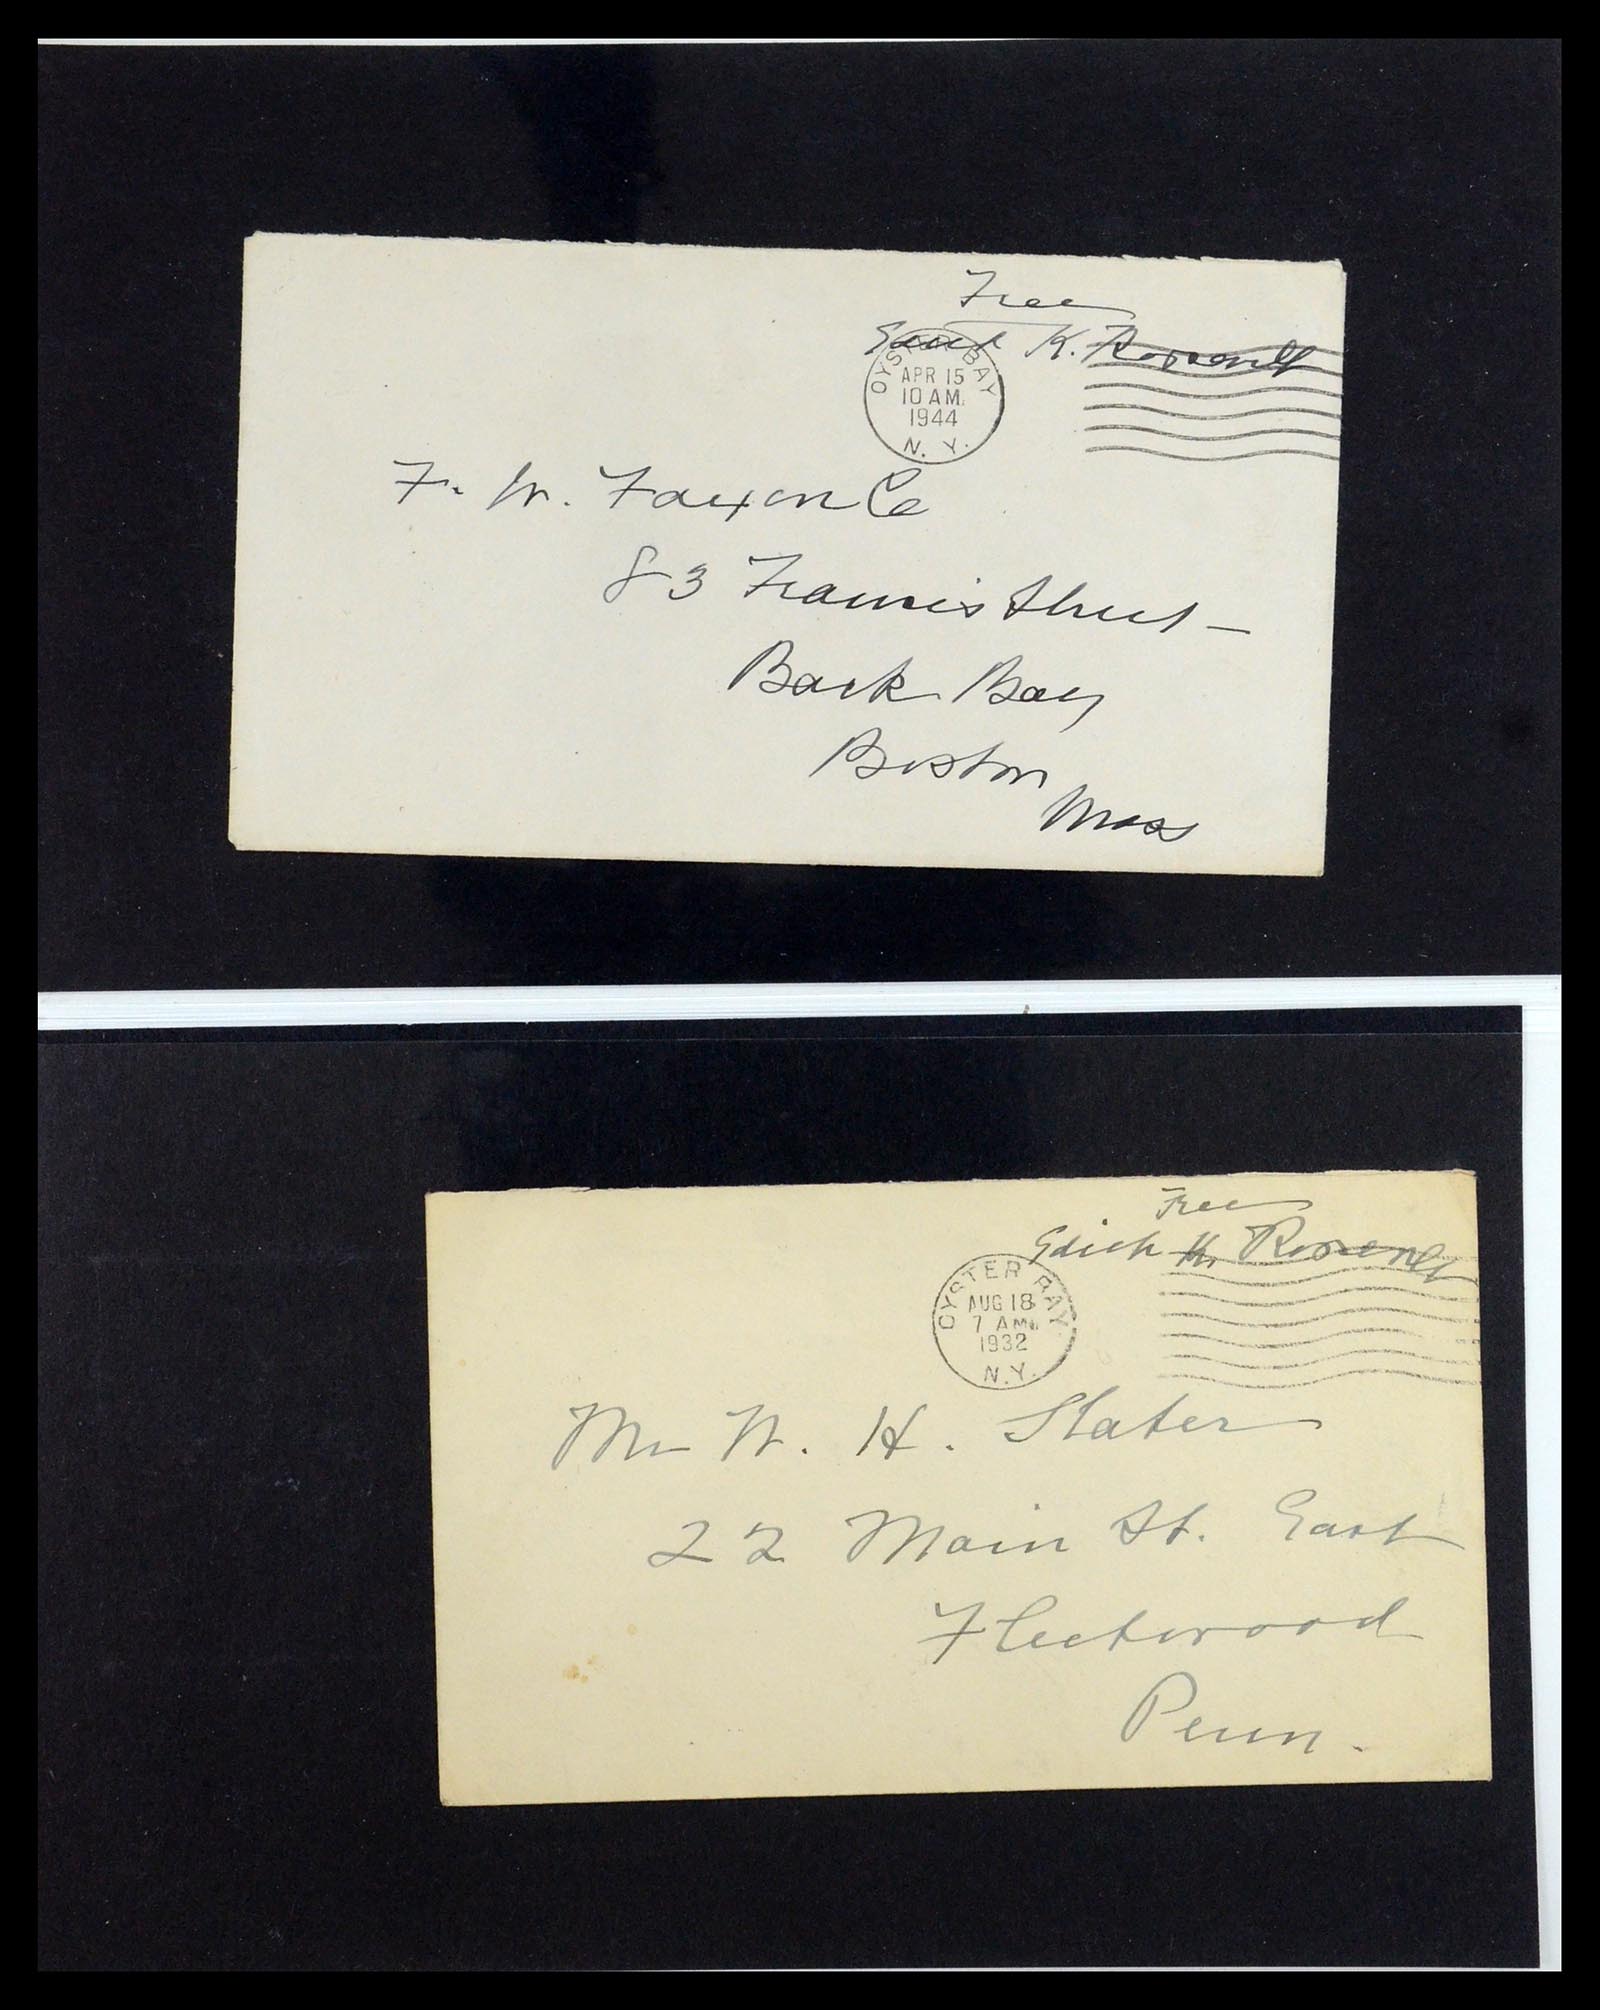 Free
Edith K. Roosevelt
OYSTER BAY
APR 15
10 AM
1944
N. Y.
F. W. Faxon Co
83 Francis Street –
Back Bay
Boston
Mass
Free
Edith K. Roosevelt
OYSTER BAY
AUG 18
7 AM
1932
N.Y.
Mr W. H. Slater
22 Main St. East
Fleetwood
Penn.